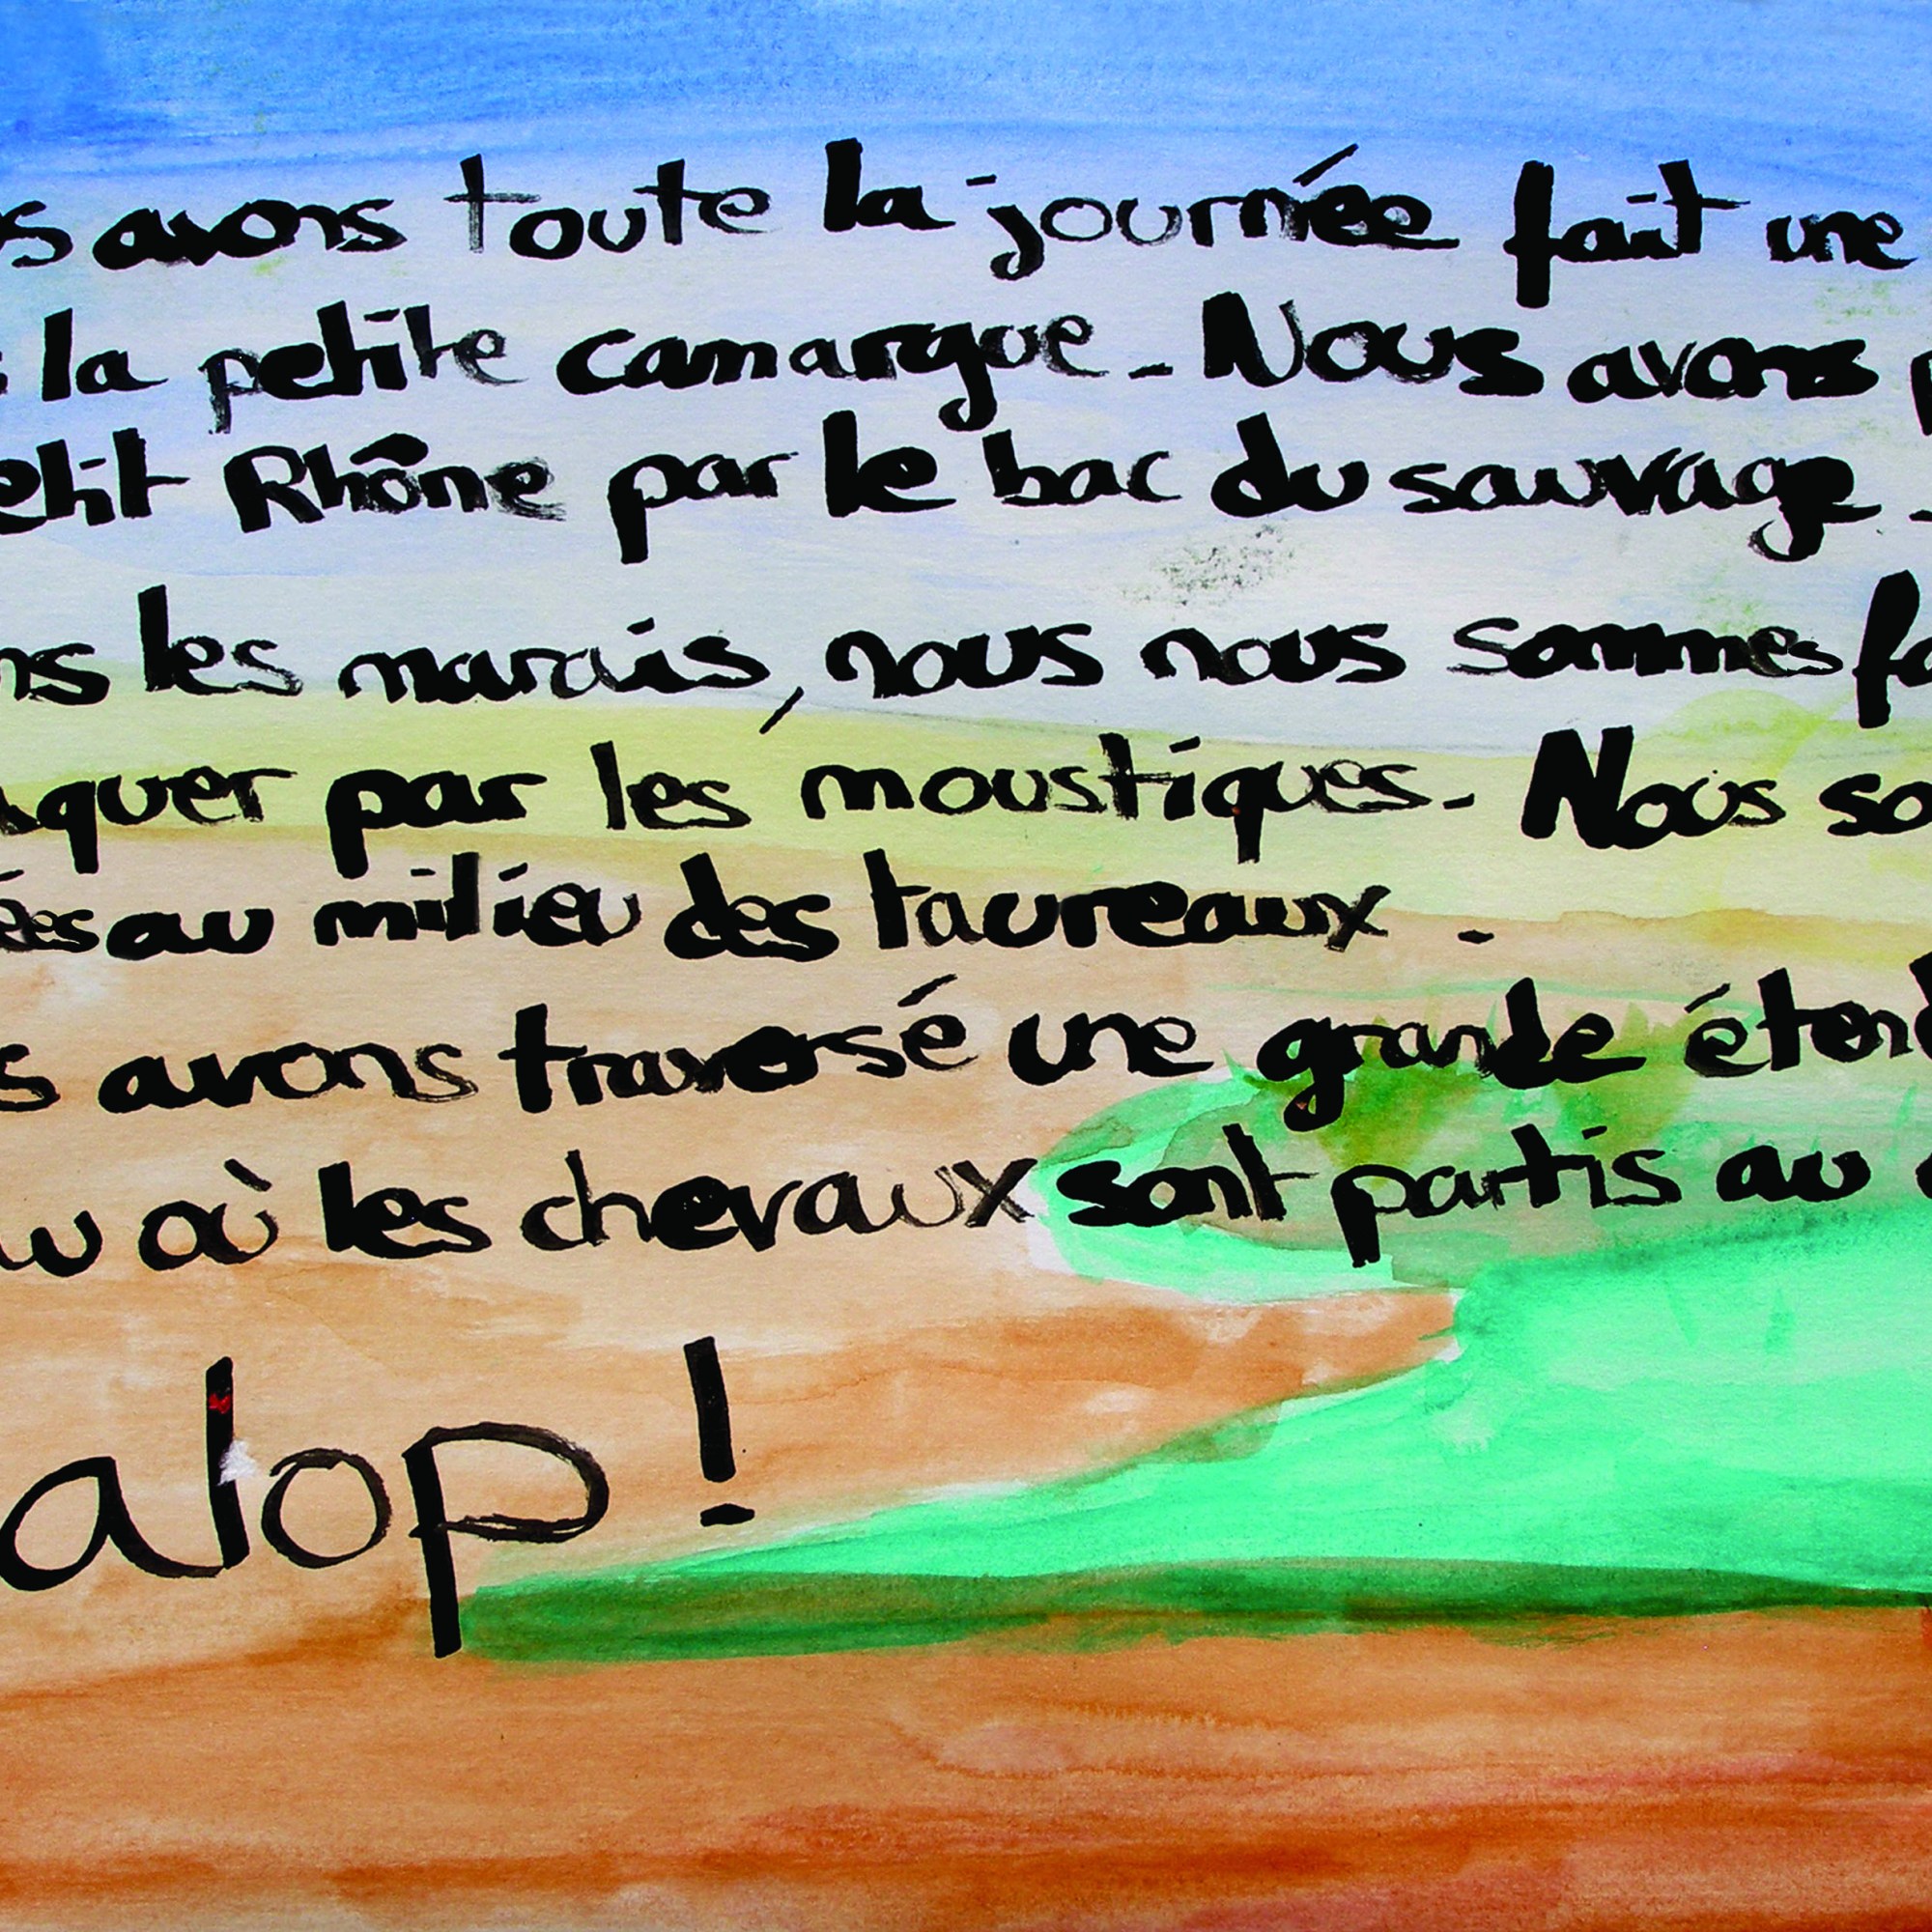 avons toute la journée fait une
la petite camargue. Nous avons
Rhône par le bac du sauvage.
les marais, nous nous sommes
par les moustiques. Nous
au milieu des taureaux.
avons traversé une grande
où les chevaux sont partis au
alop !